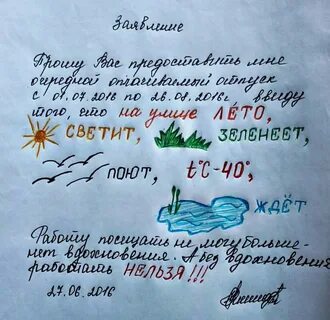 Заявление
Прошу Вас предоставить мне
очередной оплачиваемый отпуск
с 01.07.2016 по 26.08.2016г. ввиду
того, что на улице ЛЕТО,
СВЕТИТ, ЗЕЛЕНЕЕТ,
ПОЮТ, t°C-40°,
ЖДЁТ
Работу посещать не могу больше-
нет вдохновения. А без вдохновения
работать НЕЛЬЗЯ!!!
27.06.2016